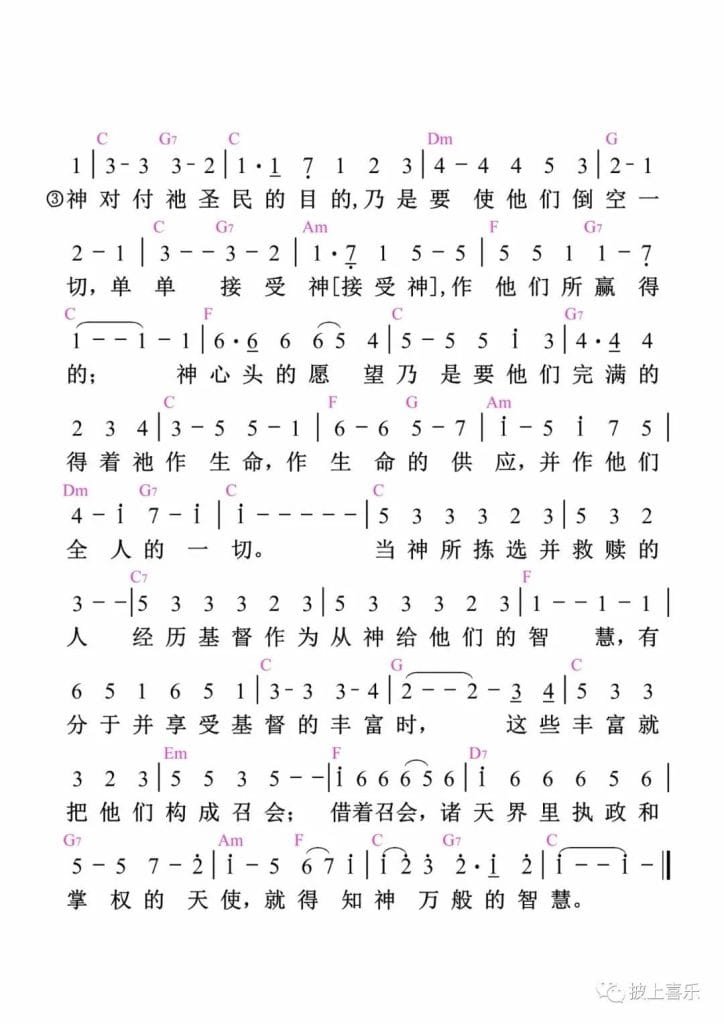 C G7 C Dm G
1 | 3- 3 3- 2 | 1· 1 7̣ 1 2 3 | 4 - 4 4 5 3 | 2 - 1
③神对付祂圣民的目的,乃是要 使他们倒空一
C G7 Am F G7
2 - 1 | 3 - - 3 - 2 | 1· 7̣ 1 5 - 5 | 5 5 1 1 - 7̣
切,单单 接受 神[接受神],作 他们所赢得
C F C G7
1 - - 1 - 1 | 6· 6 6 6 6 5 4 | 5 - 5 5 i 3 | 4· 4 4
的; 神心头的愿 望乃 是要他们完满的
C F G Am
2 3 4 | 3 - 5 5 - 1 | 6 - 6 5 - 7 | i - 5 i 7 5 |
得着祂作 生命,作生 命的 供 应,并作他们
Dm G7 C C
4 - i 7 - i | i - - - - - | 5 3 3 3 2 3 | 5 3 2
全 人的 一切。 当神所拣选并救赎的
C7 F
3 - - | 5 3 3 3 2 3 | 5 3 3 3 2 3 | 1 - - 1 - 1 |
人 经历基督作为从神给他们的智 慧,有
C G C
6 5 1 6 5 1 | 3- 3 3- 4 | 2 - - 2 - 3 4 | 5 3 3
分于并享受基督的丰富时, 这些丰富就
Em F D7
3 2 3 | 5 5 3 5 - 5 | i 6 6 6 5 6 | i 6 6 6 5 6
把他们构成召会; 借着召会,诸天界里执政和
G7 Am F C G7 C
5 - 5 7 - 2̇ | i - 5 6 7 i | i 2̇ 3̇ 2̇· i 2̇ | i - - i - ‖
掌 权的 天使,就得 知神 万般的智慧。
披上喜乐